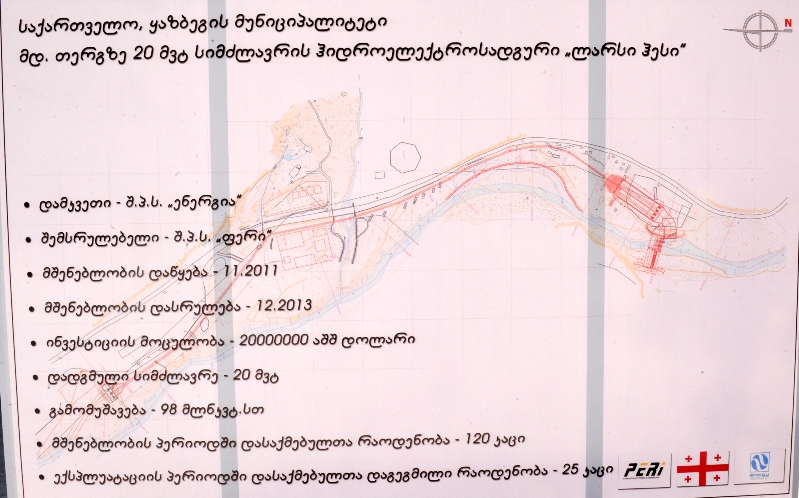 საქართველო, ყაზბეგის მუნიციპალიტეტი
მდ. თერგზე 20 მვტ სიმძლავრის ჰიდროელექტროსადგური „ლარსი ჰესი“
N
• დამკვეთი - შ.პ.ს. „ენერგია“
• შემსრულებელი - შ.პ.ს. „ფერი“
• მშენებლობის დაწყება - 11.2011
• მშენებლობის დასრულება - 12.2013
• ინვესტიციის მოცულობა - 20000000 აშშ დოლარი
• დადგმული სიმძლავრე - 20 მვტ
• გამომუშავება - 98 მლნკვტ.სთ
• მშენებლობის პერიოდში დასაქმებულთა რაოდენობა - 120 კაცი
• ექსპლუატაციის პერიოდში დასაქმებულთა დაგეგმილი რაოდენობა - 25 კაცი
PERI